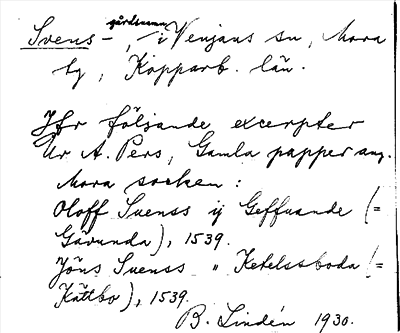 gårdsnamn
Svens-, i Venjans sn, Mora
tg, Kopparb. län.
Jfr följande excerpter
ur A. Pers, Gamla papper ang.
Mora socken:
Oloff Suenss ij Geffuande (=
Gävunda), 1539.
Jöns Suenss " Ketelssboda (=
Kättbo), 1539.
B. Lindén 1930.